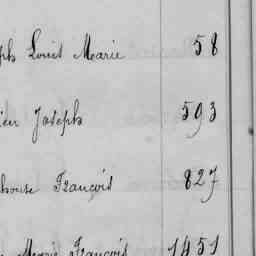 ph Louis Marie 58
ien Joseph 593
phonse François 827
Marie François 1451